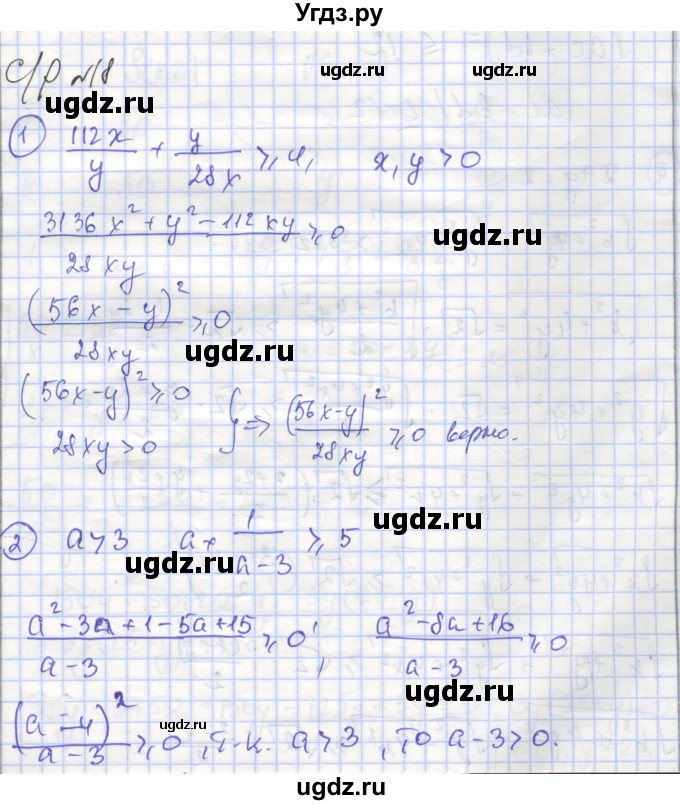 Угдз.ру
С/р №18
ugdz.ru
1 112x/y + y/28x ≥ 4, x, y > 0
(3136x² + y² - 112xy)/28xy ≥ 0
ugdz.ru
(56x - y)²/28xy ≥ 0
ugdz.ru
(56x-y)² ≥ 0
28xy > 0 } => (56x-y)²/28xy ≥ 0 верно.
ugdz.ru
2 a > 3 a + 1/(a-3) ≥ 5
ugdz.ru
(a² - 3a + 1 - 5a + 15)/(a-3) ≥ 0, (a² - 8a + 16)/(a-3) ≥ 0
ugdz.ru
(a-4)²/(a-3) ≥ 0, т.к. a > 3, то a-3 > 0.
ugdz.ru